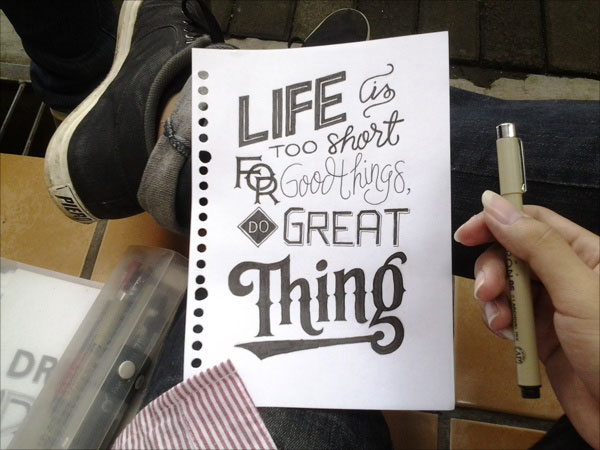 LIFE is
TOO short
FOR Good things,
DO GREAT
Thing
DR